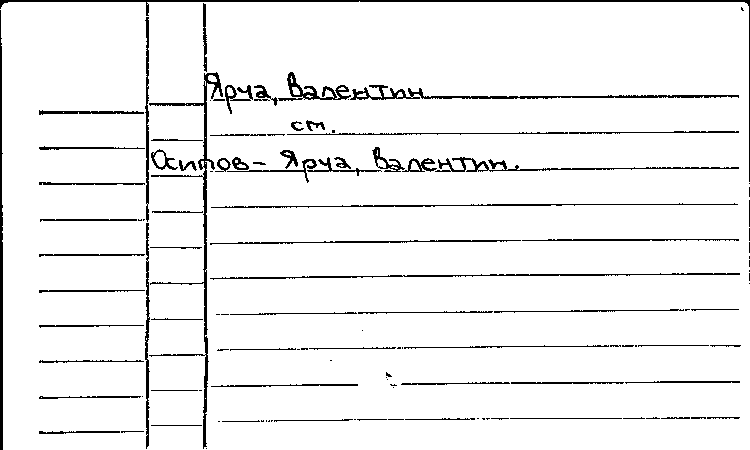 Ярча, Валентин
см.
Осипов - Ярча, Валентин.